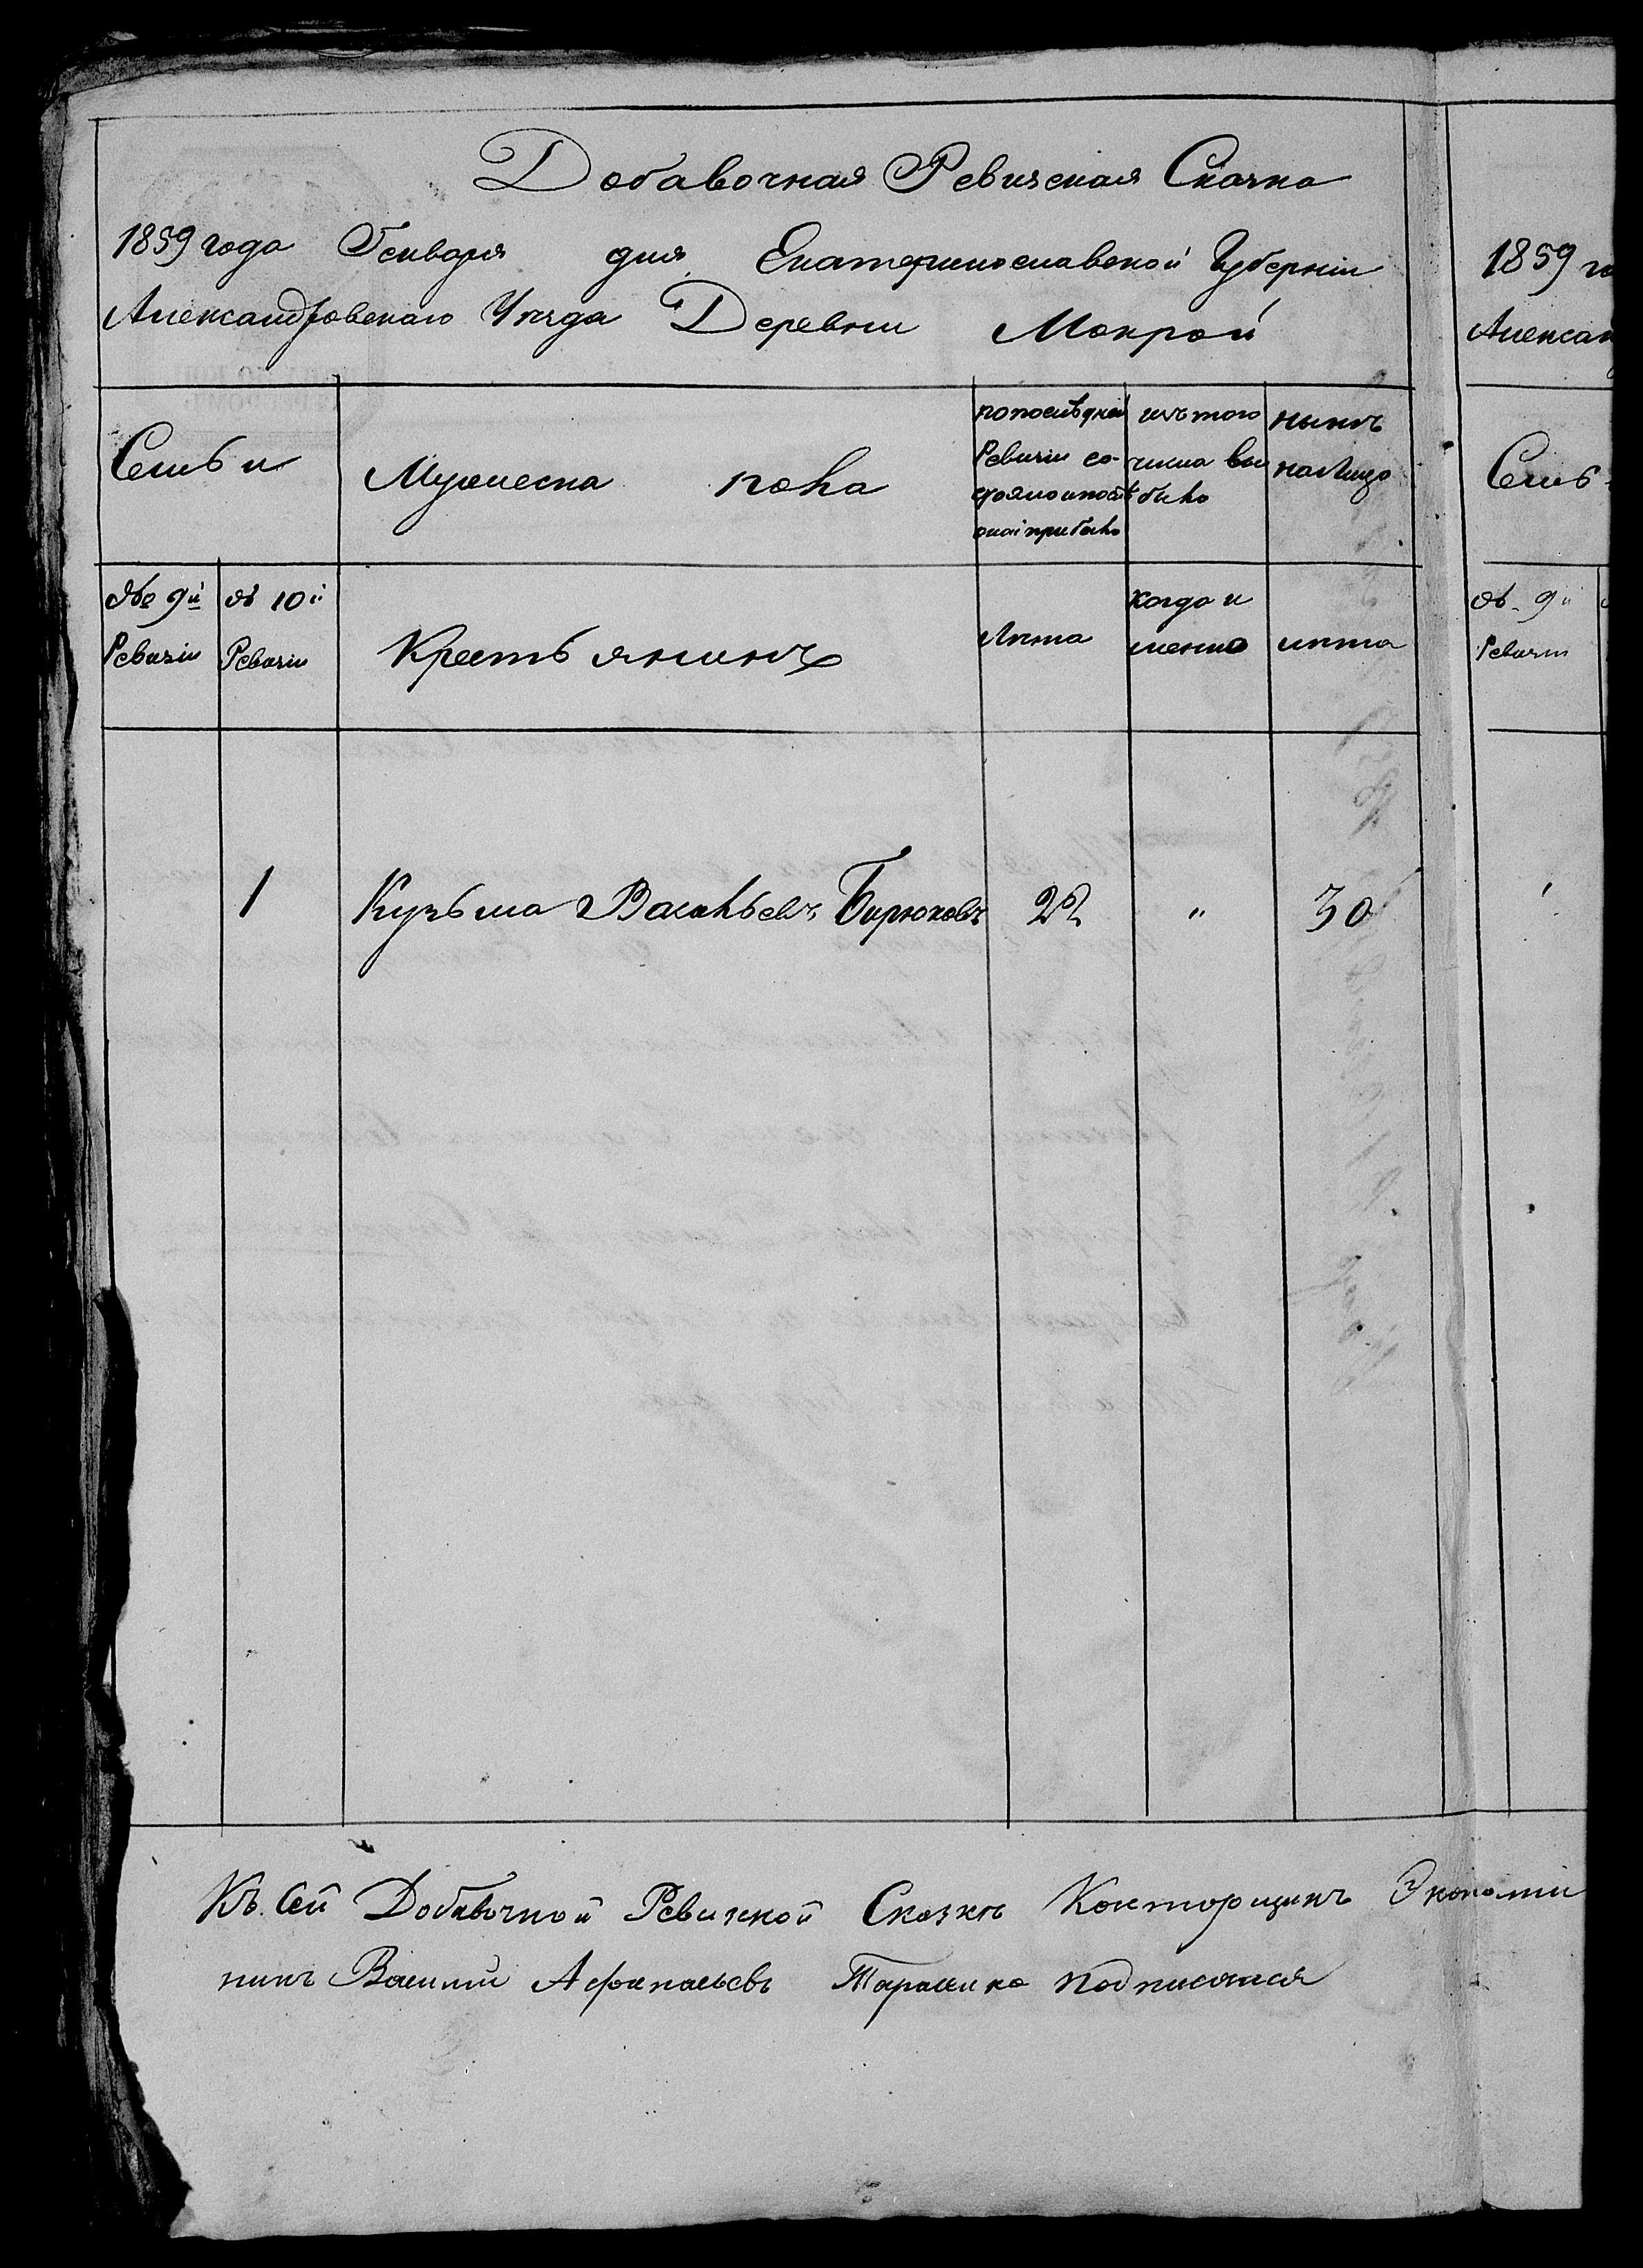 Добавочная Ревизская Сказка
1859 года Генваря дня Екатеринославской Губернiи
Александровскаго Уѣзда Деревни Мокрой
Семьи
Мужеска пола
по послѣдней
Ревизiи со-
стояло и послѣ
оной прибыло
изъ того
числа вы
было
нынѣ
на лицо
№ 9й
Ревизiи
№ 10й
Ревизiи
Крестьянинъ
Лѣта
когда и
менно
лѣта
1 Кузьма Васильевъ Бирюковъ 22 " 30
Къ Сей Добавочной Ревизкой Сказкѣ Конторщикъ Экономiи
Василий Афанасьевъ подписался
1859 го
Алексан
Семь
№ 9й
Ревизiи